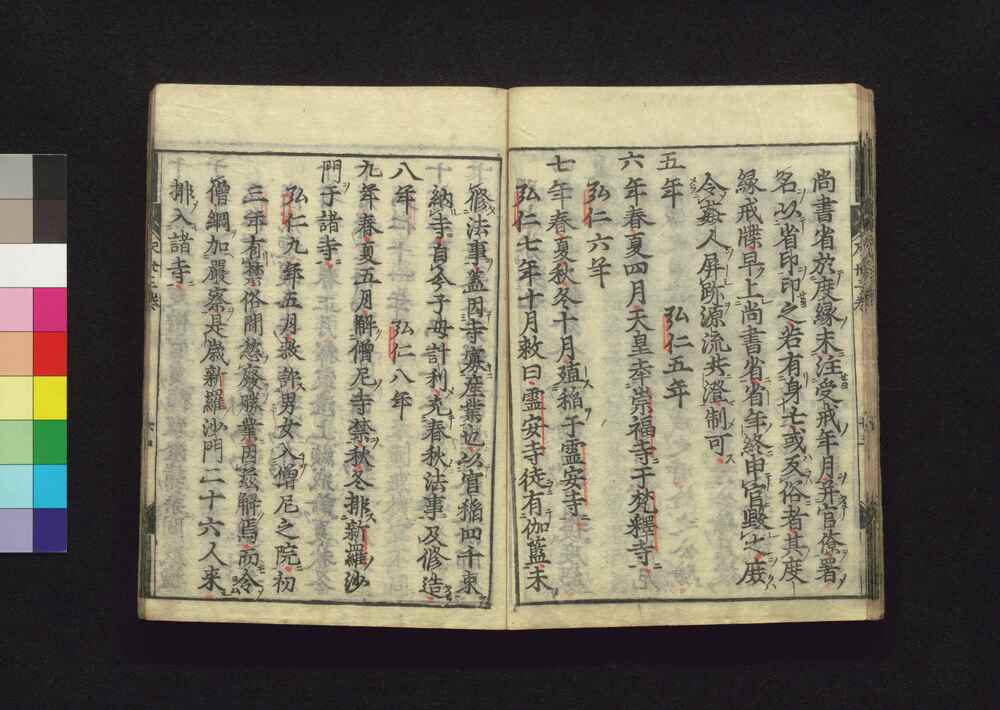 尚書省於度緣末注受戒年月并官僚署
名以省印印之若有身亡或反俗者其度
緣戒牒早上尚書省省年終申官毀之庶
令姦人屏跡源流共澄制可
五年 弘仁五年
六年春夏四月天皇幸崇福寺于梵釋寺
弘仁六年
七年春夏秋冬十月殖稲于霊安寺
弘仁七年十月敕曰霊安寺徒有伽藍未
修法事蓋因寺寡産業也以官稲四千束
納寺自今子母計利充春秋法事及修造
八年 弘仁八年
九年春夏五月解僧尼寺禁秋冬排新羅沙
門于諸寺
弘仁九年五月敕許男女入僧尼之院初
三年有禁俗間愁廢勝業因茲解焉而令
僧綱加嚴察是歲新羅沙門二十六人来
排入諸寺